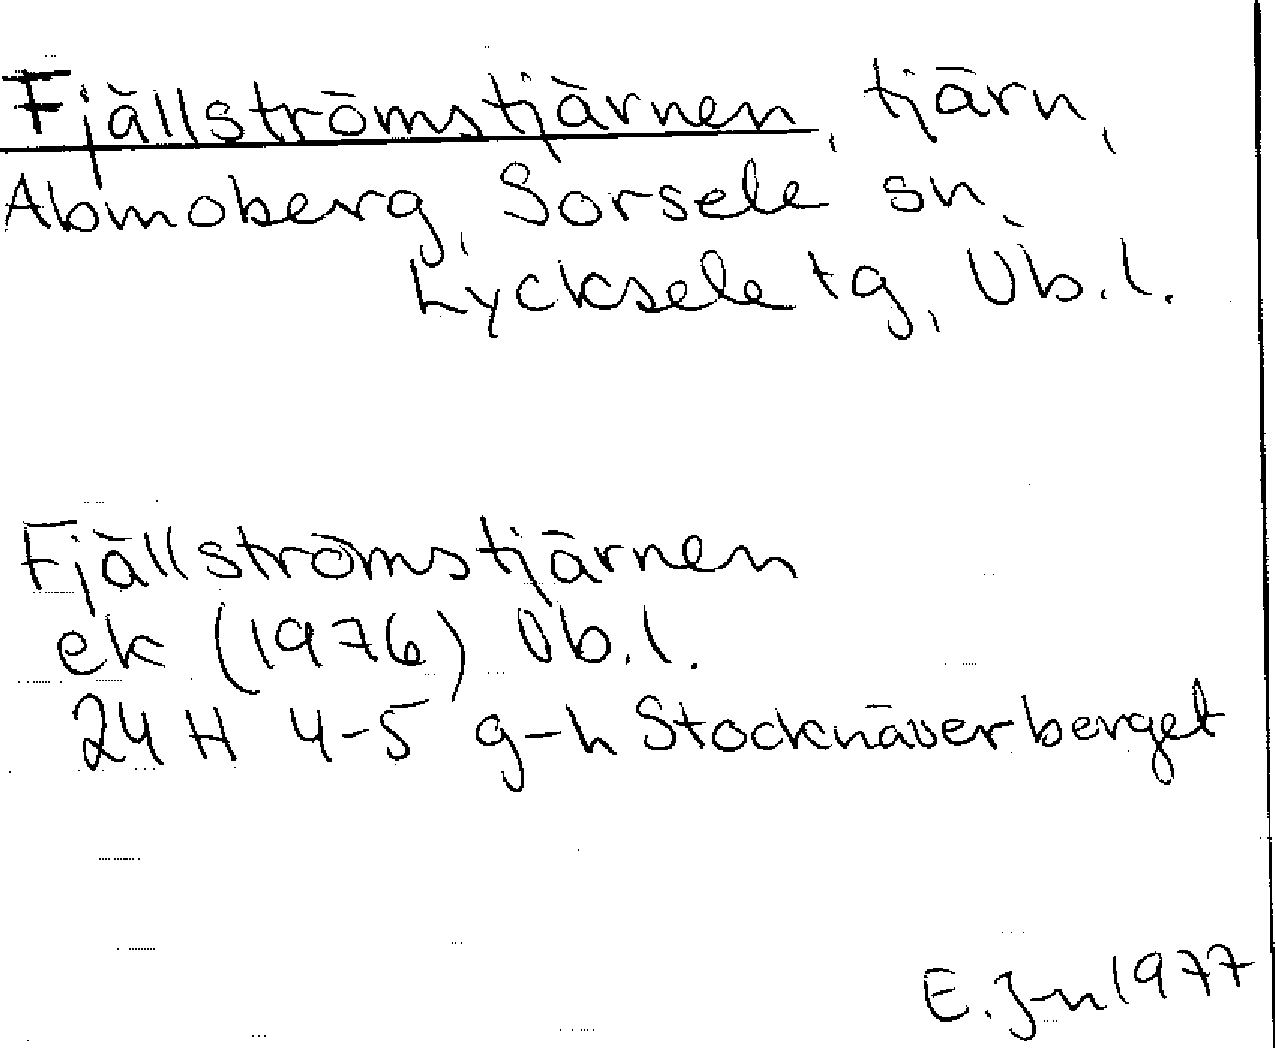 Fjällströmstjärnen, tjärn,
Abmoberg, Sorsele sn,
Lycksele tg, Vb.l.
Fjällströmstjärnen
ek (1976) Vb.l.
24H 4-5 g-h Stocknäverberget
E. J-n 1977